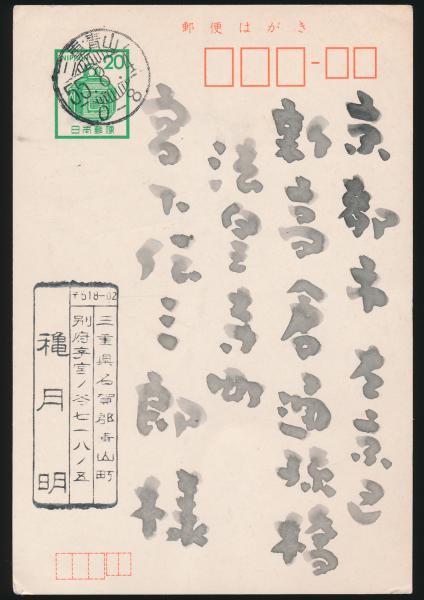 郵便はがき
NIPPON
20
日本郵便
京都市左京区
新高倉通孫橋
法皇寺町
宮下三郎様
〒518-02
三重県名賀郡青山町
別府字室ノ谷七一八ノ五
穐月明